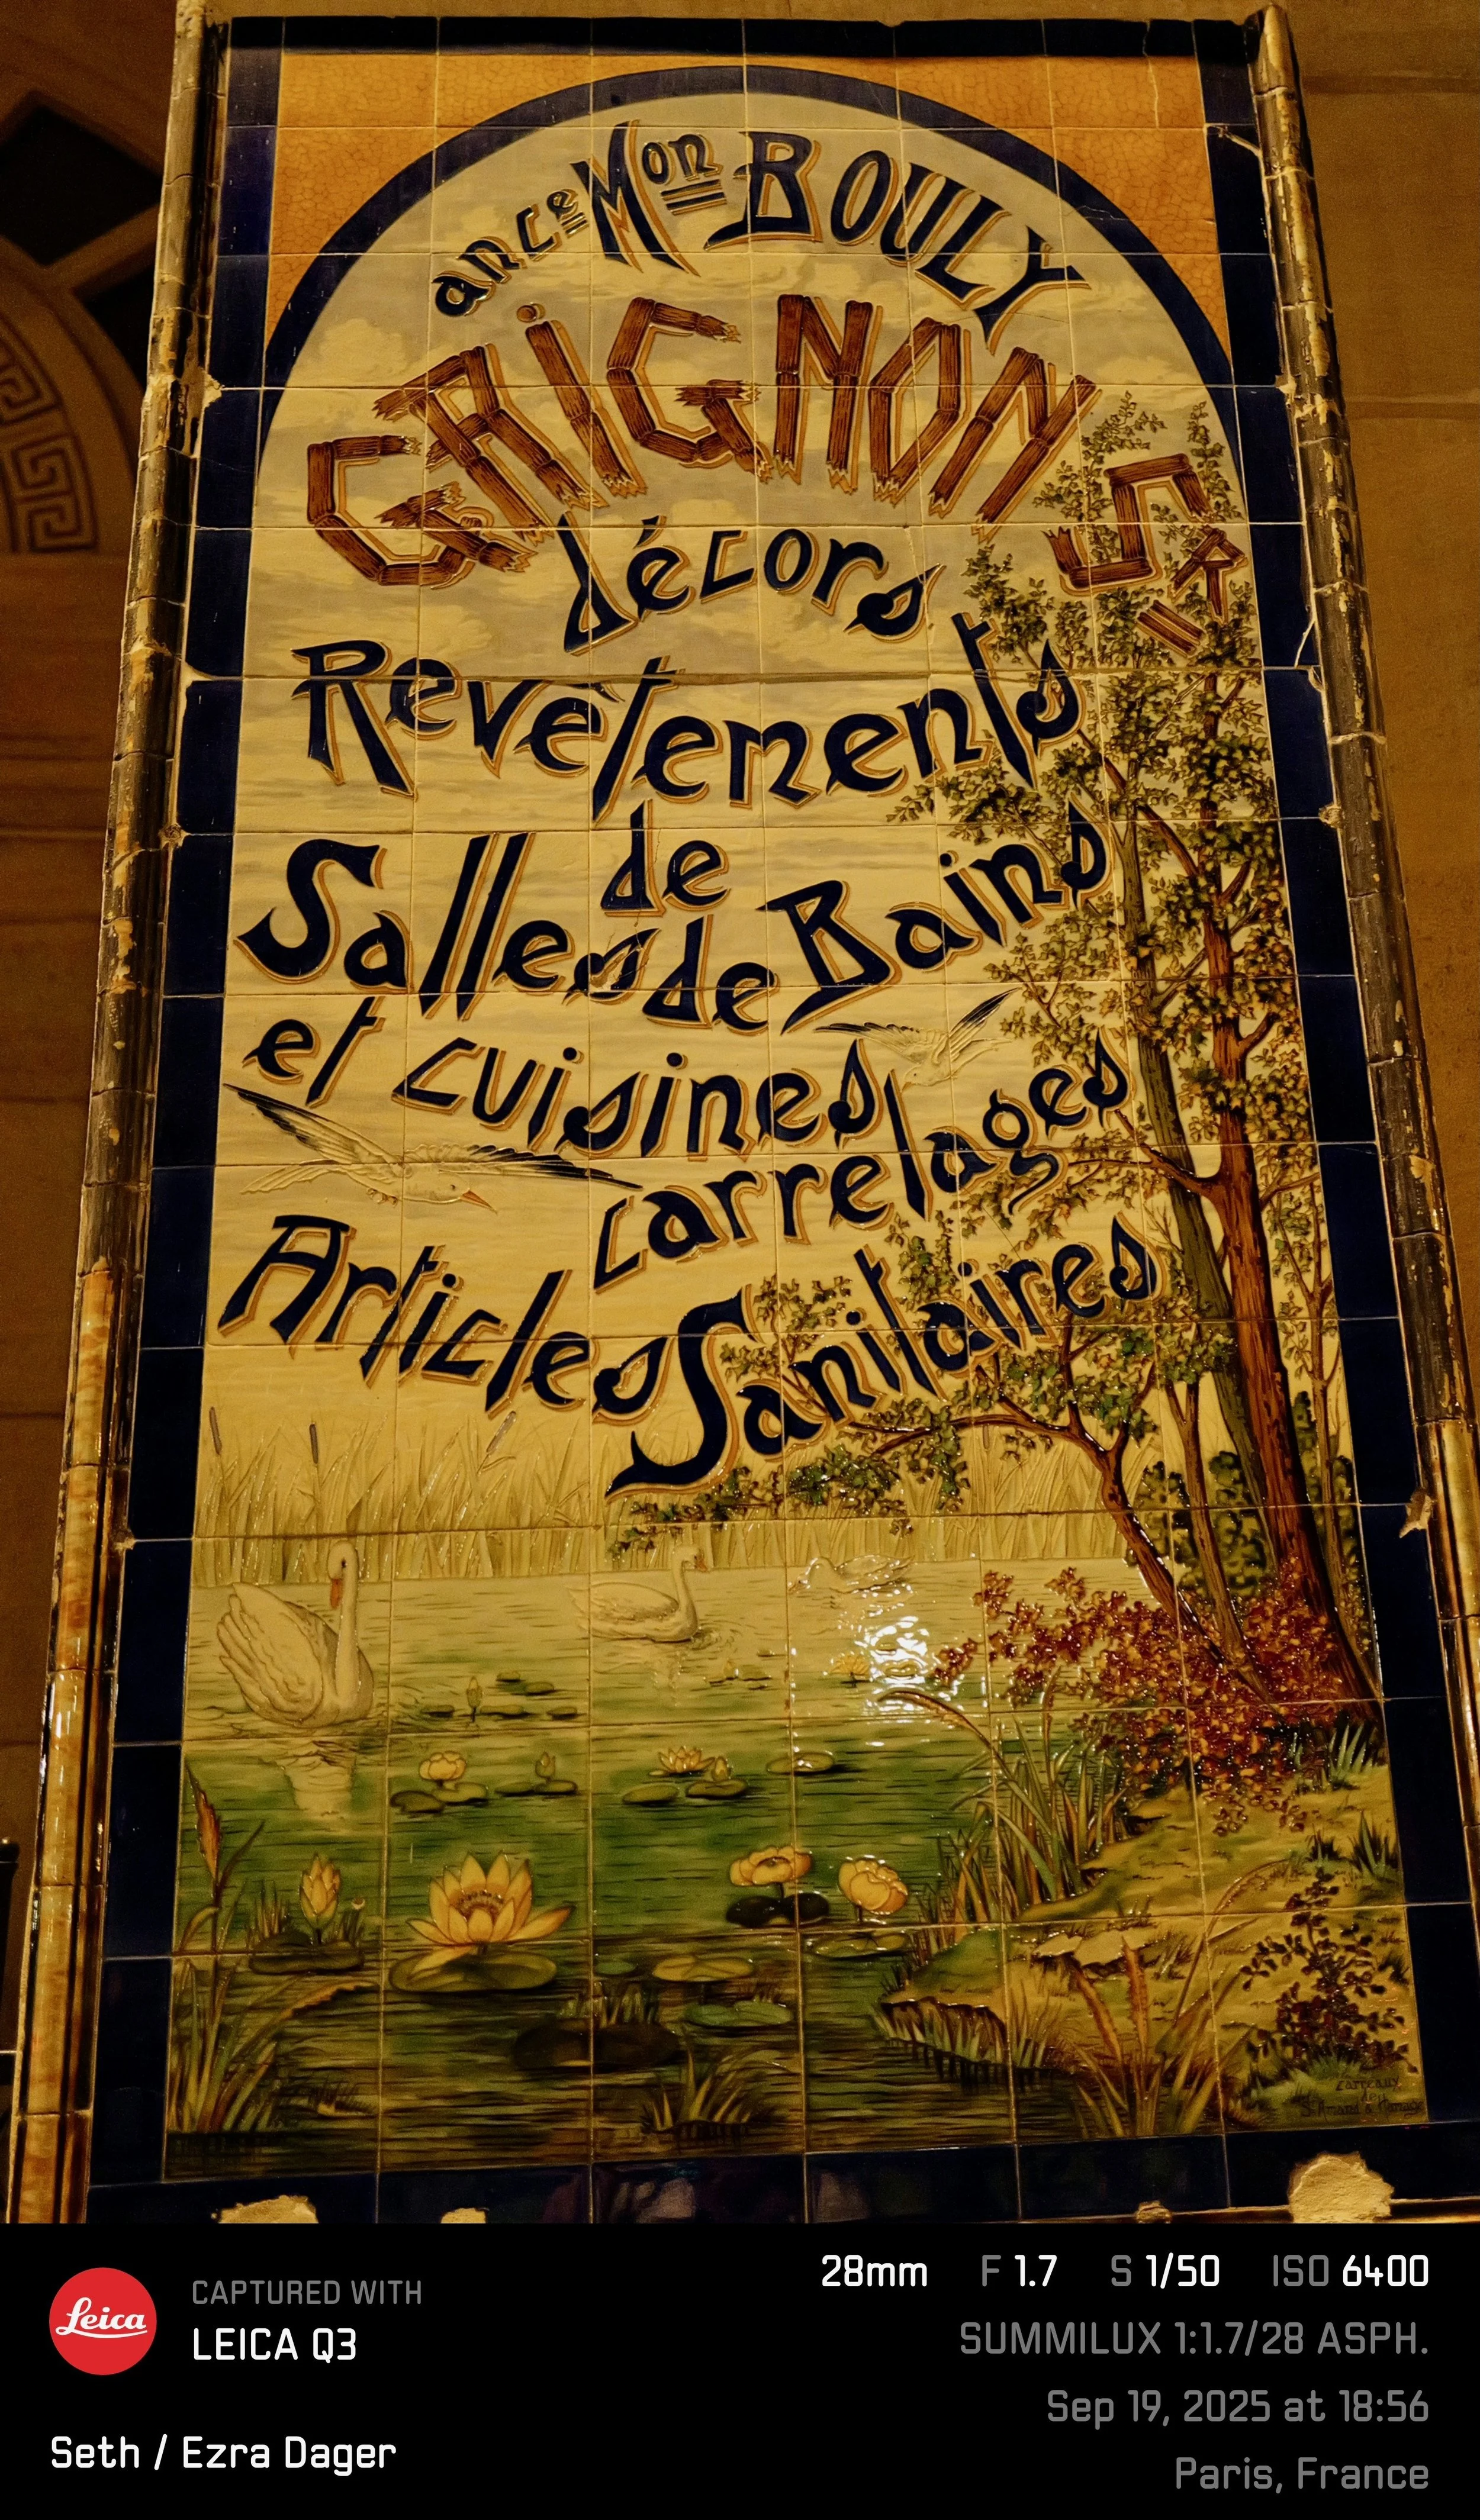 ance Mon BOULY
GRIGNON Sr
décors
Revêtements
de
Salles de Bains
et cuisines
carrelages
Articles Sanitaires
carreaux
de
Leica
CAPTURED WITH
LEICA Q3
Seth / Ezra Dager
28mm F 1.7 S 1/50 ISO 6400
SUMMILUX 1:1.7/28 ASPH.
Sep 19, 2025 at 18:56
Paris, France